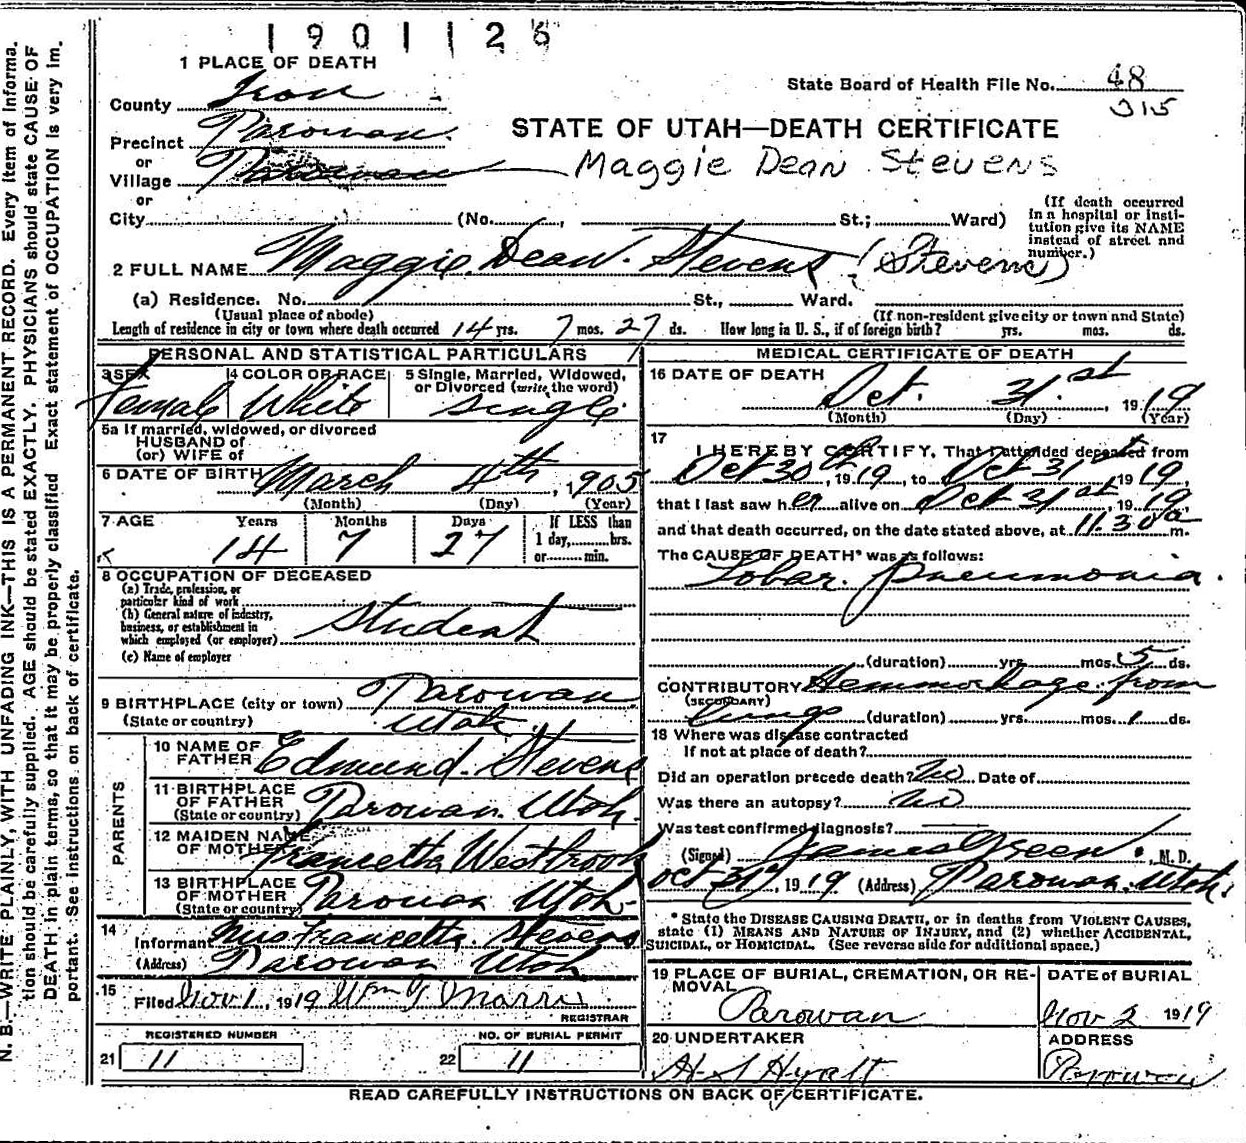 1901126
1 PLACE OF DEATH
State Board of Health File No. 48
315
County Iron
STATE OF UTAH—DEATH CERTIFICATE
Precinct Parowan
or
Village Parowan Maggie Dean Stevens
or
City (No. , St.; Ward)
(If death occurred
in a hospital or insti-
tution give its NAME
instead of street and
number.)
2 FULL NAME Maggie Dean Stevens (Stevens)
(a) Residence. No. St., Ward.
(Usual place of abode) (If non-resident give city or town and State)
Length of residence in city or town where death occurred 14 yrs. 7 mos. 27 ds. How long in U. S., if of foreign birth? yrs. mos. ds.
PERSONAL AND STATISTICAL PARTICULARS
3 SEX 4 COLOR OR RACE 5 Single, Married, Widowed,
or Divorced (write the word)
Female White Single
5a If married, widowed, or divorced
HUSBAND of
(or) WIFE of
6 DATE OF BIRTH March 4th, 1905
(Month) (Day) (Year)
7 AGE Years Months Days If LESS than
1 day, hrs.
or min.
14 7 27
8 OCCUPATION OF DECEASED
(a) Trade, profession, or
particular kind of work
(b) General nature of industry,
business, or establishment in
which employed (or employer) Student
(c) Name of employer
9 BIRTHPLACE (city or town) Parowan
(State or country) Utah
PARENTS
10 NAME OF
FATHER Edmund Stevens
11 BIRTHPLACE
OF FATHER Parowan Utah
(State or country)
12 MAIDEN NAME
OF MOTHER Francetta Westbrook
13 BIRTHPLACE
OF MOTHER Parowan Utah
(State or country)
14
Informant Mrs Francetta Stevens
(Address) Parowan Utah
15
Filed Nov 1, 1919 Wm
REGISTRAR
REGISTERED NUMBER NO. OF BURIAL PERMIT
21 11 22 11
MEDICAL CERTIFICATE OF DEATH
16 DATE OF DEATH
Oct. 31st, 1919
(Month) (Day) (Year)
17
I HEREBY CERTIFY, That I attended deceased from
Oct 30th, 1919, to Oct 31st 1919,
that I last saw her alive on Oct 31st, 1919
and that death occurred, on the date stated above, at 11.30 a m.
The CAUSE OF DEATH* was as follows:
Lobar Pneumonia.
(duration) yrs. mos. 5 ds.
CONTRIBUTORY Hemmorhage from
(SECONDARY)
lungs (duration) yrs. mos. 1 ds.
18 Where was disease contracted
If not at place of death?
Did an operation precede death? No Date of
Was there an autopsy? No
Was test confirmed diagnosis?
(Signed) James Green, M. D.
Oct 31, 1919 (Address) Parowan Utah.
* State the DISEASE CAUSING DEATH, or in deaths from VIOLENT CAUSES,
state (1) MEANS AND NATURE OF INJURY, and (2) whether ACCIDENTAL,
SUICIDAL, or HOMICIDAL. (See reverse side for additional space.)
19 PLACE OF BURIAL, CREMATION, OR RE-
MOVAL DATE of BURIAL
Parowan Nov 2 1919
20 UNDERTAKER ADDRESS
H S Hyatt Parowan
READ CAREFULLY INSTRUCTIONS ON BACK OF CERTIFICATE.
N. B.—WRITE PLAINLY, WITH UNFADING INK—THIS IS A PERMANENT RECORD. Every item of informa-
tion should be carefully supplied. AGE should be stated EXACTLY. PHYSICIANS should state CAUSE OF
DEATH in plain terms, so that it may be properly classified Exact statement of OCCUPATION is very im-
portant. See instructions on back of certificate.